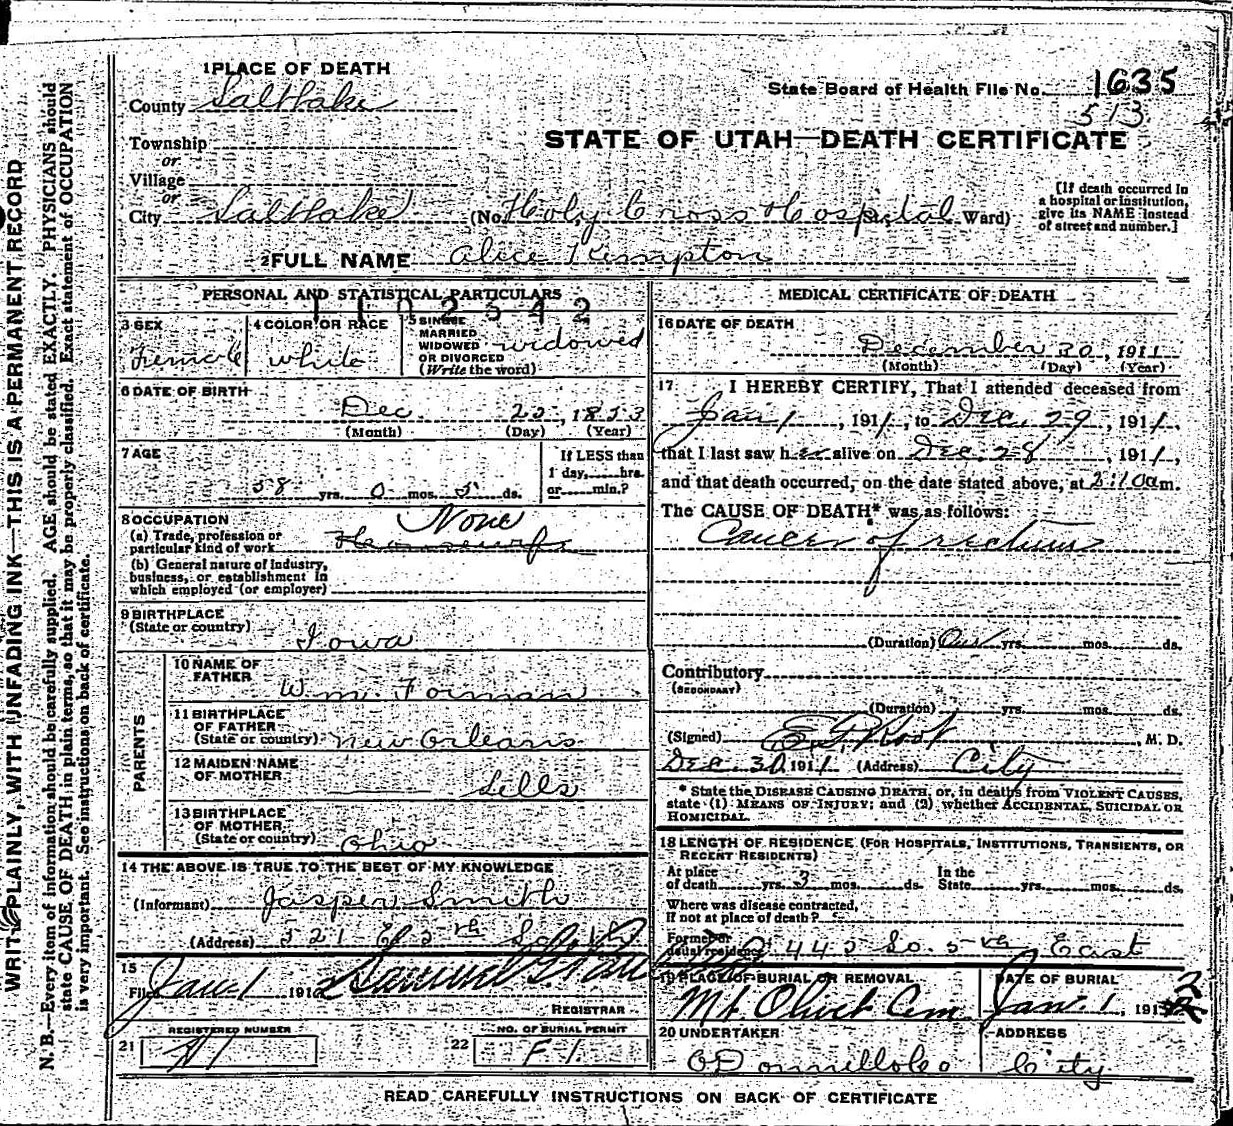 1 PLACE OF DEATH
County Saltlake
State Board of Health File No. 1635
513
Township
or
Village
or
City Saltlake (No. Holy Cross Hospital Ward)
STATE OF UTAH—DEATH CERTIFICATE
[If death occurred in
a hospital or institution,
give its NAME instead
of street and number.]
2 FULL NAME Alice Kempton
PERSONAL AND STATISTICAL PARTICULARS
1102542
3 SEX
Female
4 COLOR OR RACE
white
5 SINGLE
MARRIED
WIDOWED
OR DIVORCED
(Write the word)
widowed
6 DATE OF BIRTH
Dec. 25, 1853
(Month) (Day) (Year)
7 AGE
58 yrs. 0 mos. 5 ds.
If LESS than
1 day, hrs.
or min.?
8 OCCUPATION
(a) Trade, profession or
particular kind of work
None
Housewife
(b) General nature of Industry,
business, or establishment in
which employed (or employer)
9 BIRTHPLACE
(State or country)
Iowa
PARENTS
10 NAME OF
FATHER
Wm. Forman
11 BIRTHPLACE
OF FATHER
(State or country) New Orleans
12 MAIDEN NAME
OF MOTHER
Sells
13 BIRTHPLACE
OF MOTHER
(State or country) Ohio
14 THE ABOVE IS TRUE TO THE BEST OF MY KNOWLEDGE
(Informant) Jasper Smith
(Address) 521 E 5th So.
15
Filed Jan 1 1912 Samuel G.
REGISTRAR
REGISTERED NUMBER
21
NO. OF BURIAL PERMIT
22 F-1
MEDICAL CERTIFICATE OF DEATH
16 DATE OF DEATH
December 30, 1911
(Month) (Day) (Year)
17 I HEREBY CERTIFY, That I attended deceased from
Jan 1, 1911, to Dec. 29, 1911,
that I last saw her alive on Dec. 28, 1911,
and that death occurred, on the date stated above, at 2:10am.
The CAUSE OF DEATH* was as follows:
Cancer of rectum
(Duration) One yrs. mos. ds.
Contributory
(SECONDARY)
(Duration) yrs. mos. ds.
(Signed) E.G. Root, M. D.
Dec. 30, 1911 (Address) City
* State the DISEASE CAUSING DEATH, or, in deaths from VIOLENT CAUSES,
state (1) MEANS OF INJURY; and (2) whether ACCIDENTAL, SUICIDAL OR
HOMICIDAL.
18 LENGTH OF RESIDENCE (FOR HOSPITALS, INSTITUTIONS, TRANSIENTS, OR
RECENT RESIDENTS)
At place
of death yrs. 3 mos. ds.
In the
State yrs. mos. ds.
Where was disease contracted,
If not at place of death?
Former or
usual residence 445 So. 5th East
19 PLACE OF BURIAL OR REMOVAL
Mt. Olivet Cem
DATE OF BURIAL
Jan. 1, 1912
20 UNDERTAKER
O'Donnell & Co
ADDRESS
City
READ CAREFULLY INSTRUCTIONS ON BACK OF CERTIFICATE
WRITE PLAINLY, WITH UNFADING INK—THIS IS A PERMANENT RECORD
N. B.—Every item of information should be carefully supplied. AGE should be stated EXACTLY. PHYSICIANS should
state CAUSE OF DEATH in plain terms, so that it may be properly classified. Exact statement of OCCUPATION
is very important. See instructions on back of certificate.